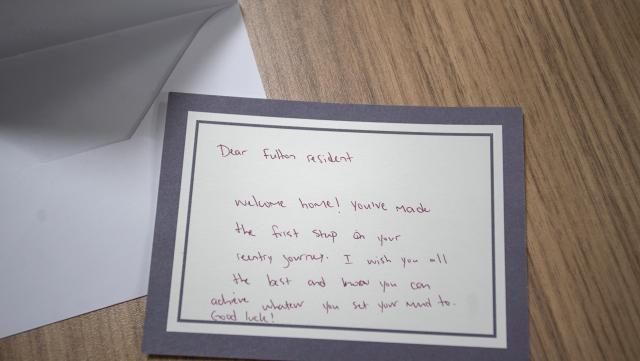 Dear Fulton resident
welcome home! you've made
the frist step on your
reentry journey. I wish you all
the best and know you can
achieve whatever you set your mind to.
Good luck!